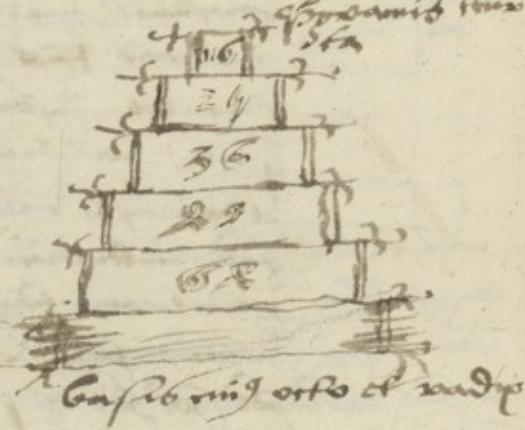 Pyramis trun
cta
16
25
36
49
64
basis cuiꝰ octo est radix